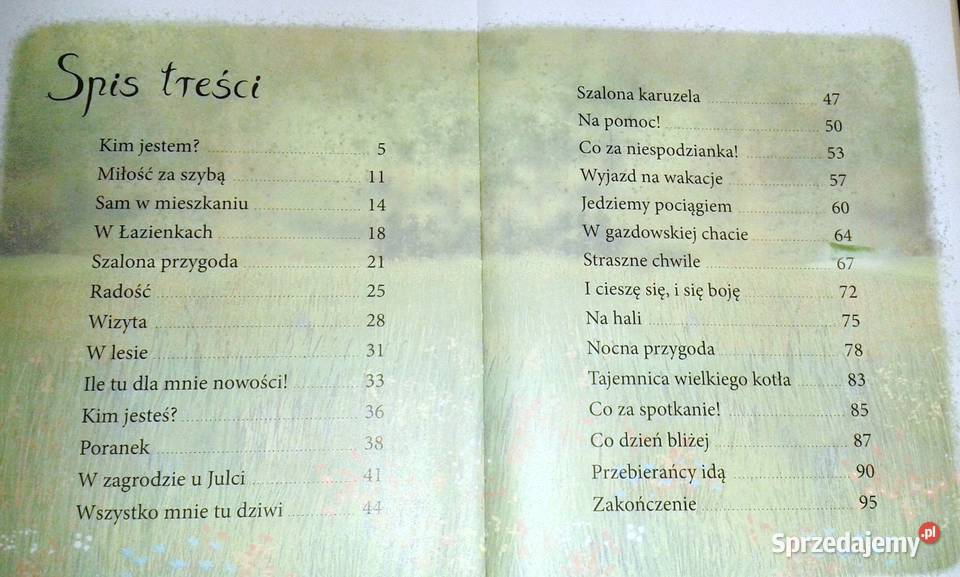 Spis treści
Kim jestem? 5
Miłość za szybą 11
Sam w mieszkaniu 14
W Łazienkach 18
Szalona przygoda 21
Radość 25
Wizyta 28
W lesie 31
Ile tu dla mnie nowości! 33
Kim jesteś? 36
Poranek 38
W zagrodzie u Julci 41
Wszystko mnie tu dziwi 44
Szalona karuzela 47
Na pomoc! 50
Co za niespodzianka! 53
Wyjazd na wakacje 57
Jedziemy pociągiem 60
W gazdowskiej chacie 64
Straszne chwile 67
I cieszę się, i się boję 72
Na hali 75
Nocna przygoda 78
Tajemnica wielkiego kotła 83
Co za spotkanie! 85
Co dzień bliżej 87
Przebierańcy idą 90
Zakończenie 95
Sprzedajemy.pl